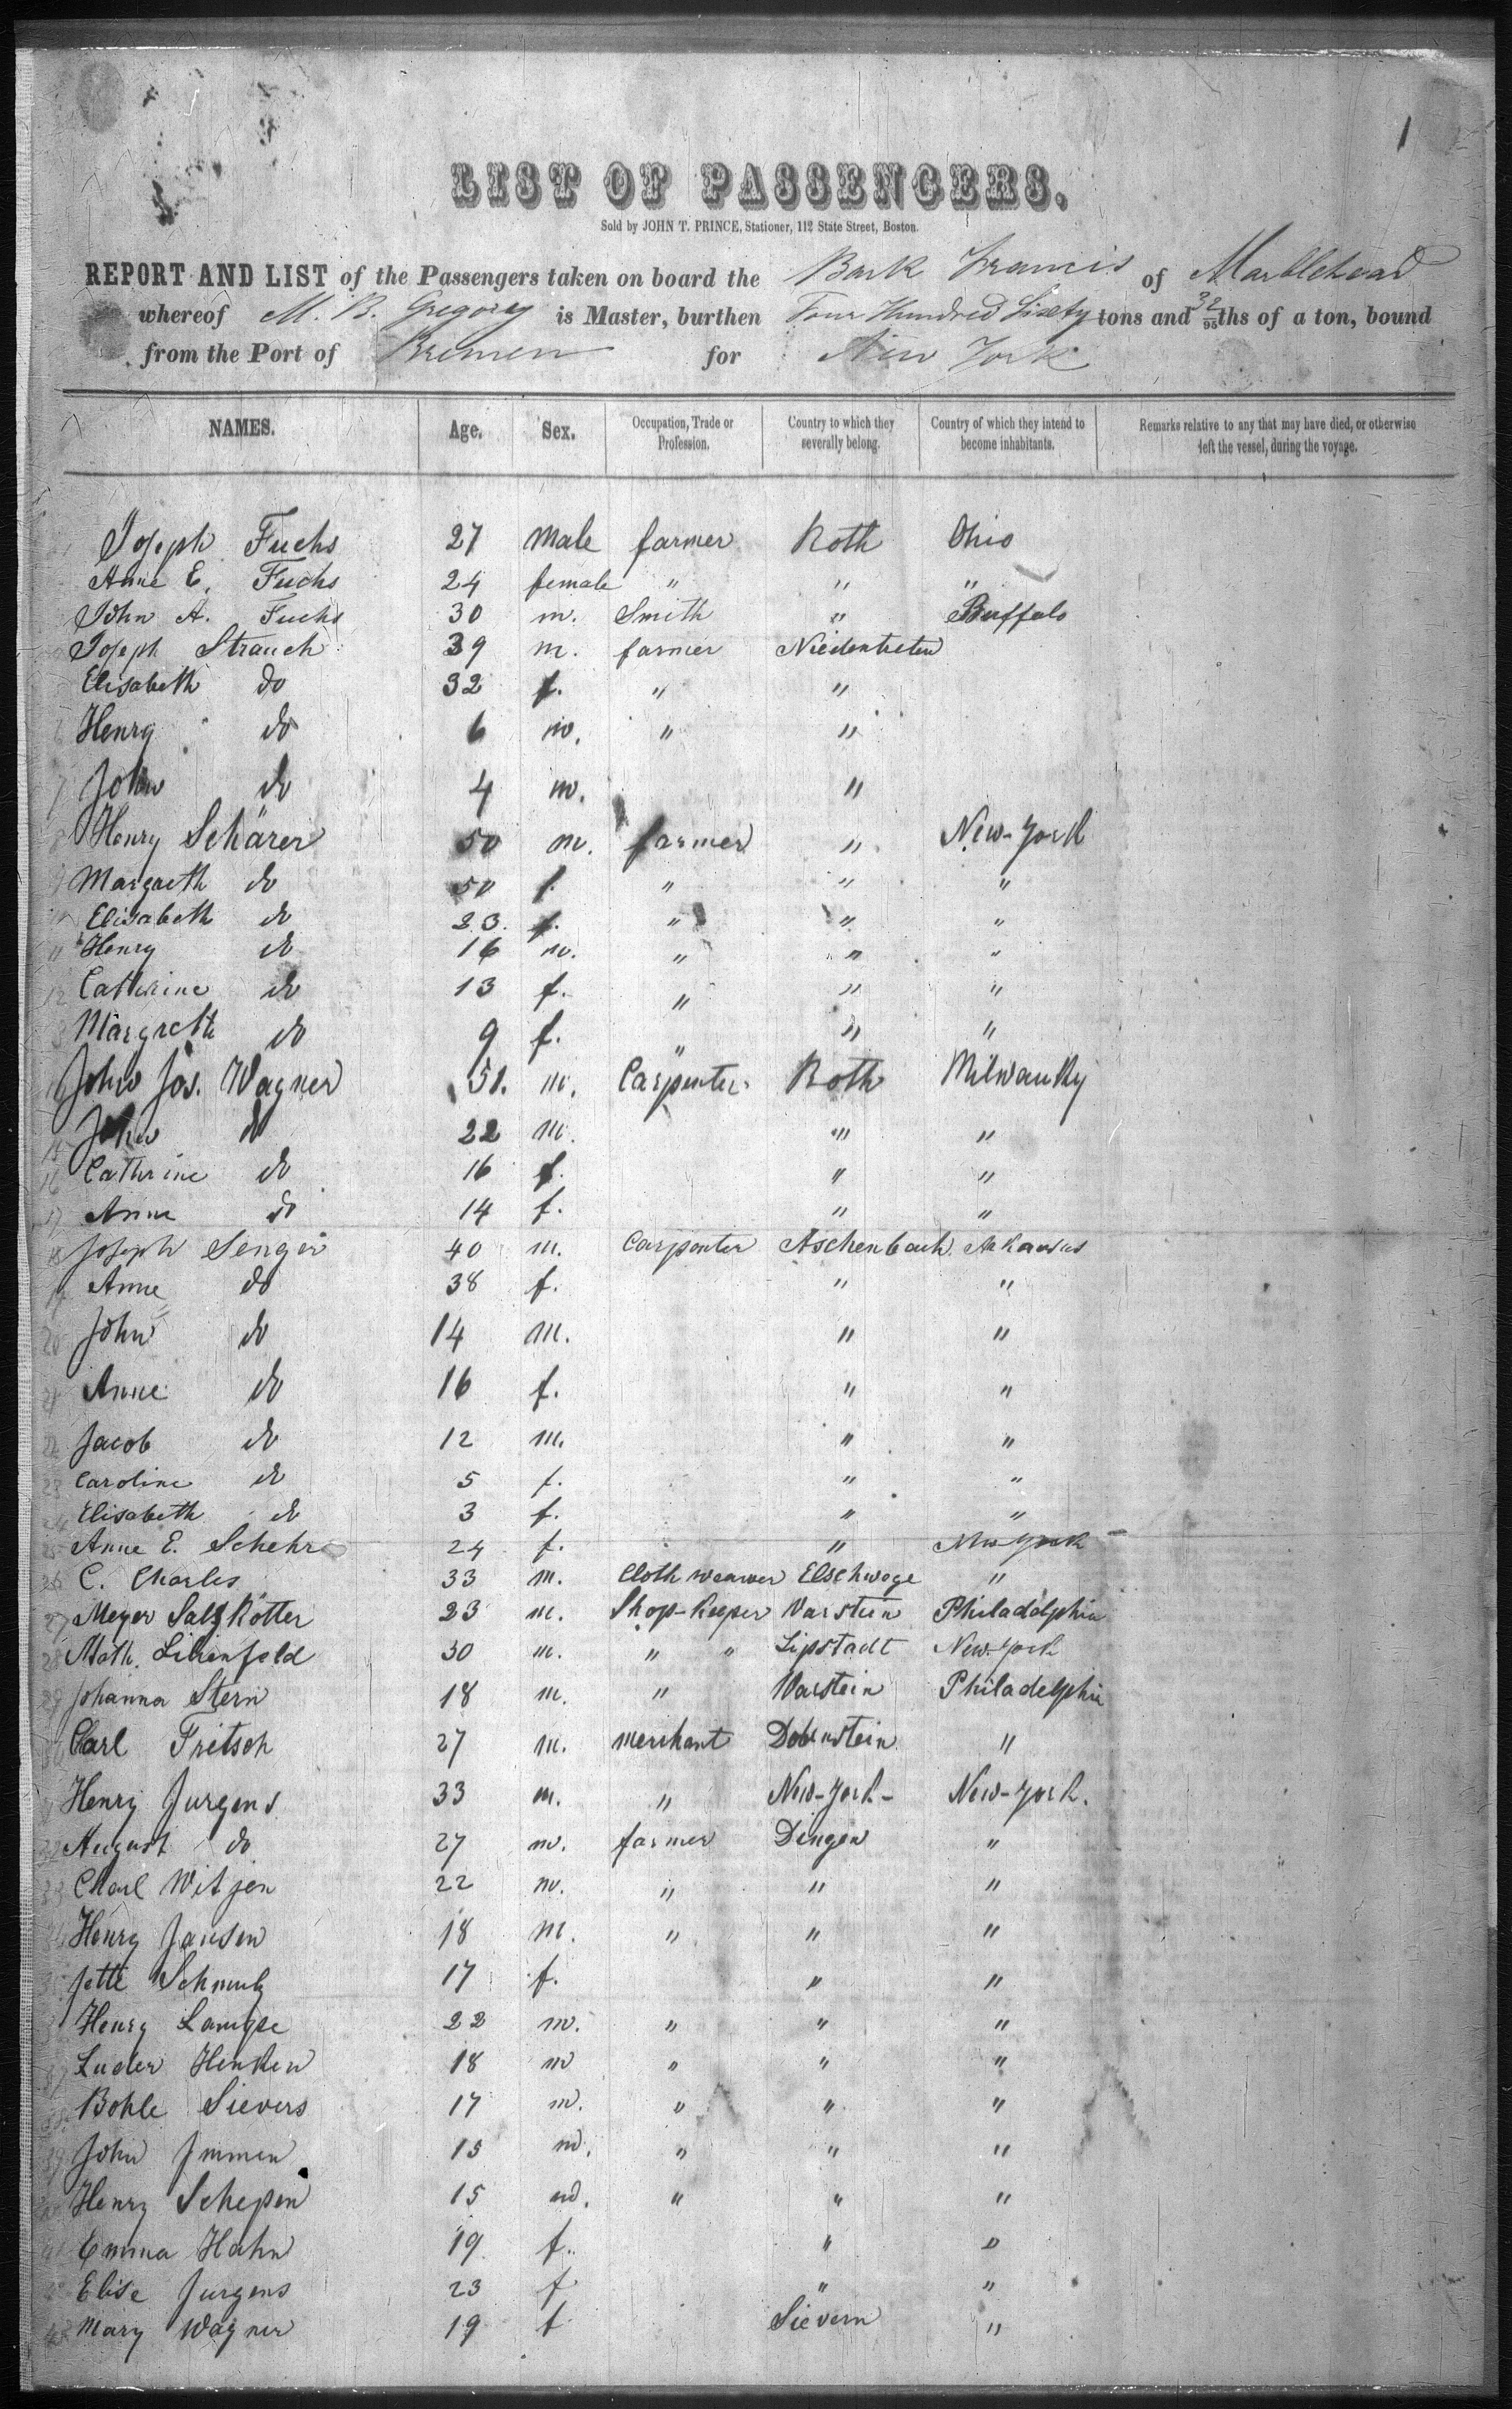 1
LIST OF PASSENGERS.
Sold by JOHN T. PRINCE, Stationer, 112 State Street, Boston.
REPORT AND LIST of the Passengers taken on board the Bark Francis of Marblehead
whereof M. B. Gregory is Master, burthen Four Hundred Sixty tons and 32/95ths of a ton, bound
from the Port of Bremen for New York
NAMES. Age. Sex. Occupation, Trade or Profession. Country to which they severally belong. Country of which they intend to become inhabitants. Remarks relative to any that may have died, or otherwise left the vessel, during the voyage.
Joseph Fuchs 27 Male farmer Roth Ohio
Anne E. Fuchs 24 female " " "
John A. Fuchs 30 m. Smith " Buffalo
Joseph Strauch 39 m. farmer
Elisabeth do 32 f. " "
6 Henry do 6 m. " "
7 John do 4 m. "
8 Henry Schärer 50 m. farmer " New-York
9 Margreth do 50 f. " " "
10 Elisabeth do 23. f. " " "
11 Henry do 16 m. " " "
12 Catherine do 13 f. " " "
13 Margreth do 9 f. " " "
14 John Jos. Wagner 51. m. Carpenter Roth Milwauky
15 John do 22 m. " "
16 Cathrine do 16 f. " "
17 Anne do 14 f. " "
18 Joseph Senger 40 m. Carpenter Aschenbach Arkansas
19 Anne do 38 f. " "
20 John do 14 m. " "
21 Anne do 16 f. " "
22 Jacob do 12 m. " "
23 Caroline do 5 f. " "
24 Elisabeth do 3 f. " "
25 Anne E. Schehr 24 f. " New York
26 C. Charles 33 m. Cloth weawer Elschwege "
27 Meyer Salzkotter 23 m. Shop-Keeper Varstein Philadelphia
28 Math. Lilienfeld 30 m. " " Lipstadt New-York
29 Johanna Stern 18 m. " Varstein Philadelphia
30 Carl Fritsch 27 m. merchant "
31 Henry Jurgens 33 m. " New-York- New-York.
32 August do 27 m. farmer Dingen "
33 Charl Witjen 22 m. " " "
34 Henry Jansen 18 m. " " "
35 Jette Schmutz 17 f. " "
36 Henry Lampe 22 m. " " "
37 Luder Henken 18 m " " "
38 Bohle Sievers 17 m. " " "
39 John Immen 15 m. " " "
40 Henry Schepen 15 m. " " "
41 Emma Hahn 19 f. " "
42 Elise Jurgens 23 f " "
43 Mary Wagner 19 f Sievern "